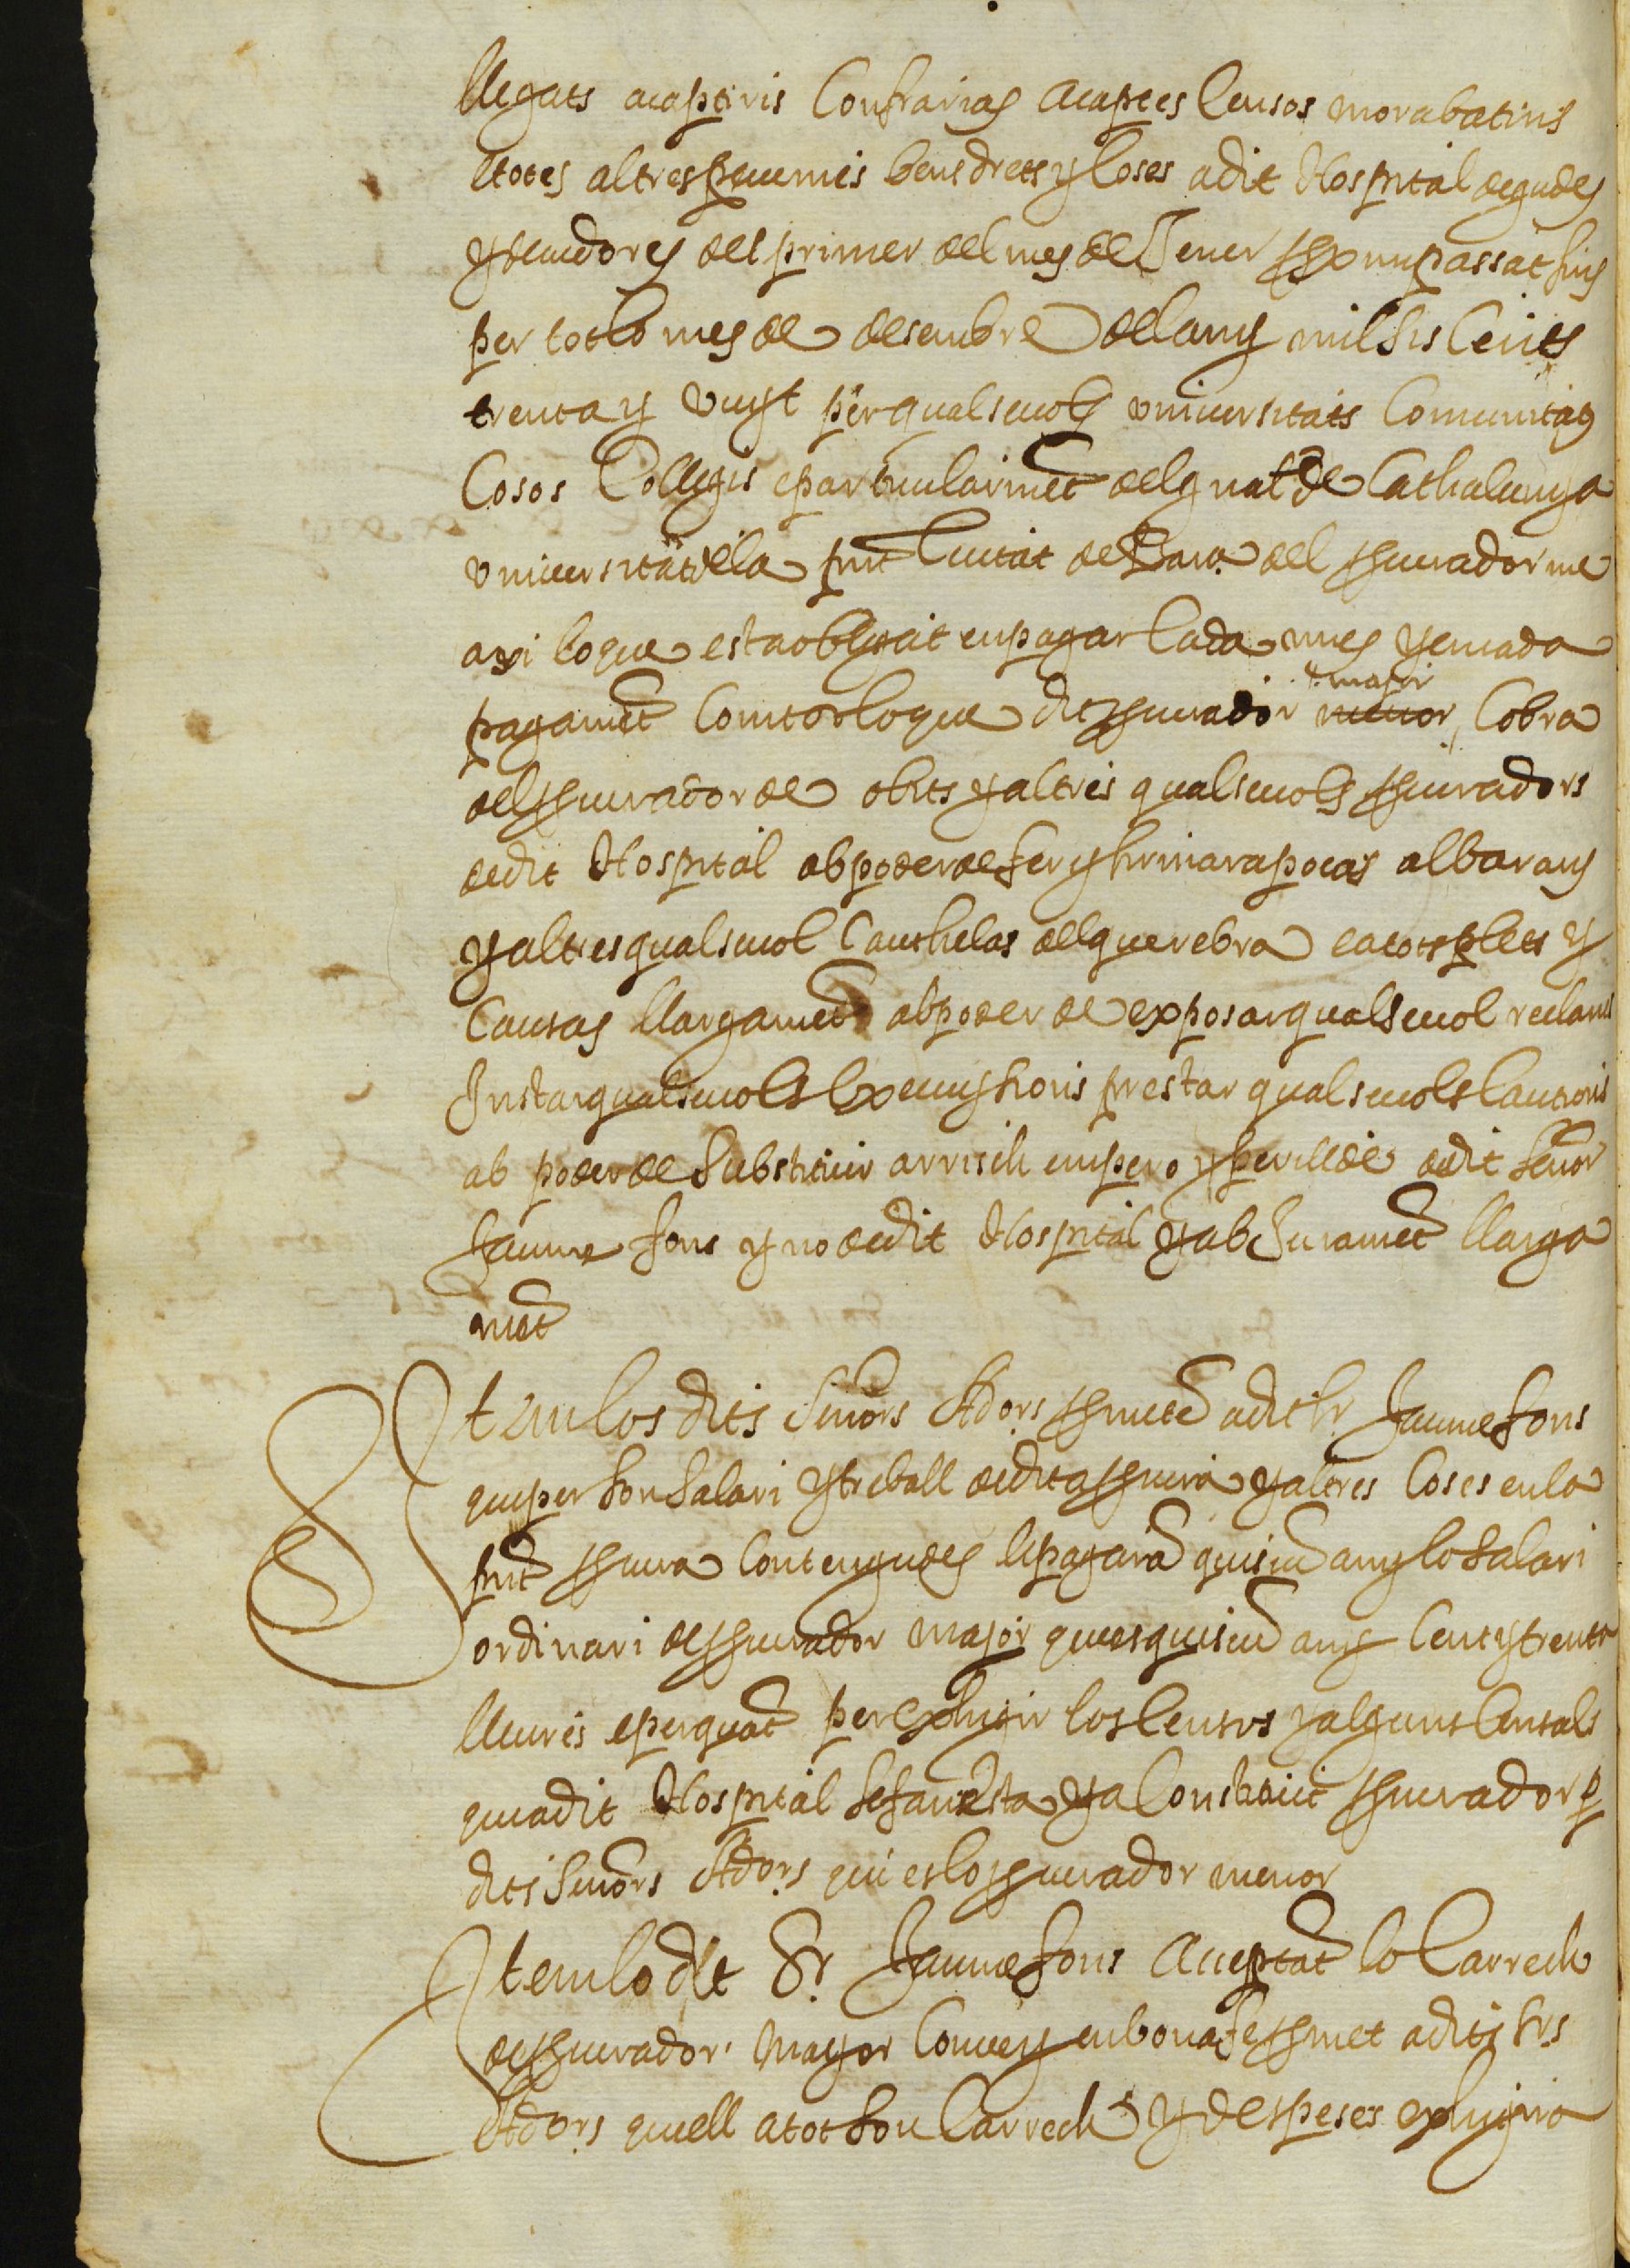 llegats acaptiris Confrarias acaptes Censos morabatins
etotes altres pecunies bens drets y Coses adit Hospital degudes
y deuedores del primer del mes de Jener prop passat fins
per tot lo mes de desembre del any mil sis Cents
trenta y vuyt per qualseuols vniuersitats Comunitats
Cosos Collegis e particularmet del gnal de Cathalunya
vniuersitat dela pnt Ciutat de Barna del pcurador me
axi lo que esta obligat en pagar Cada mes y en cada
pagamet Com tot lo que dit pcurador major menor Cobra
del pcurador de obits y altres qualseuols pcuradors
de dit Hospital ab poder de fer y firmar apocas albarans
y altres qualseuol Cauthelas del que rebra e a tots plets y
Causas llargamet ab poder de exposar qualseuol reclams
Instar qualseuols Execussions prestar qualseuols Cautions
ab poder de Substituir a rrisch empero y perill de dit Senor
Jaume fons y no de dit Hospital y ab Juramet llarga
met
Item los dits Senors Adors pmete a dit Sr Jaume fons
que per Son Salari y treball de dita pcura y altres Coses en la
pnt pcura Contengudes li pagara quiscu any lo Salari
ordinari de pcurador major que es quiscu any Cent y trenta
lliures e per quat per exhigir los Censos y alguns Censals
que a dit Hospital Se fan esta ya Constituit pcurador p
dits Senors Adors qui es lo pcurador menor
Item lo dit Sr. Jaume fons acceptat lo Carrech
de pcurador major Conve y en bona fe pmet a dits Srs
Adors que ell a tot Son Carrech y despeses exhigira